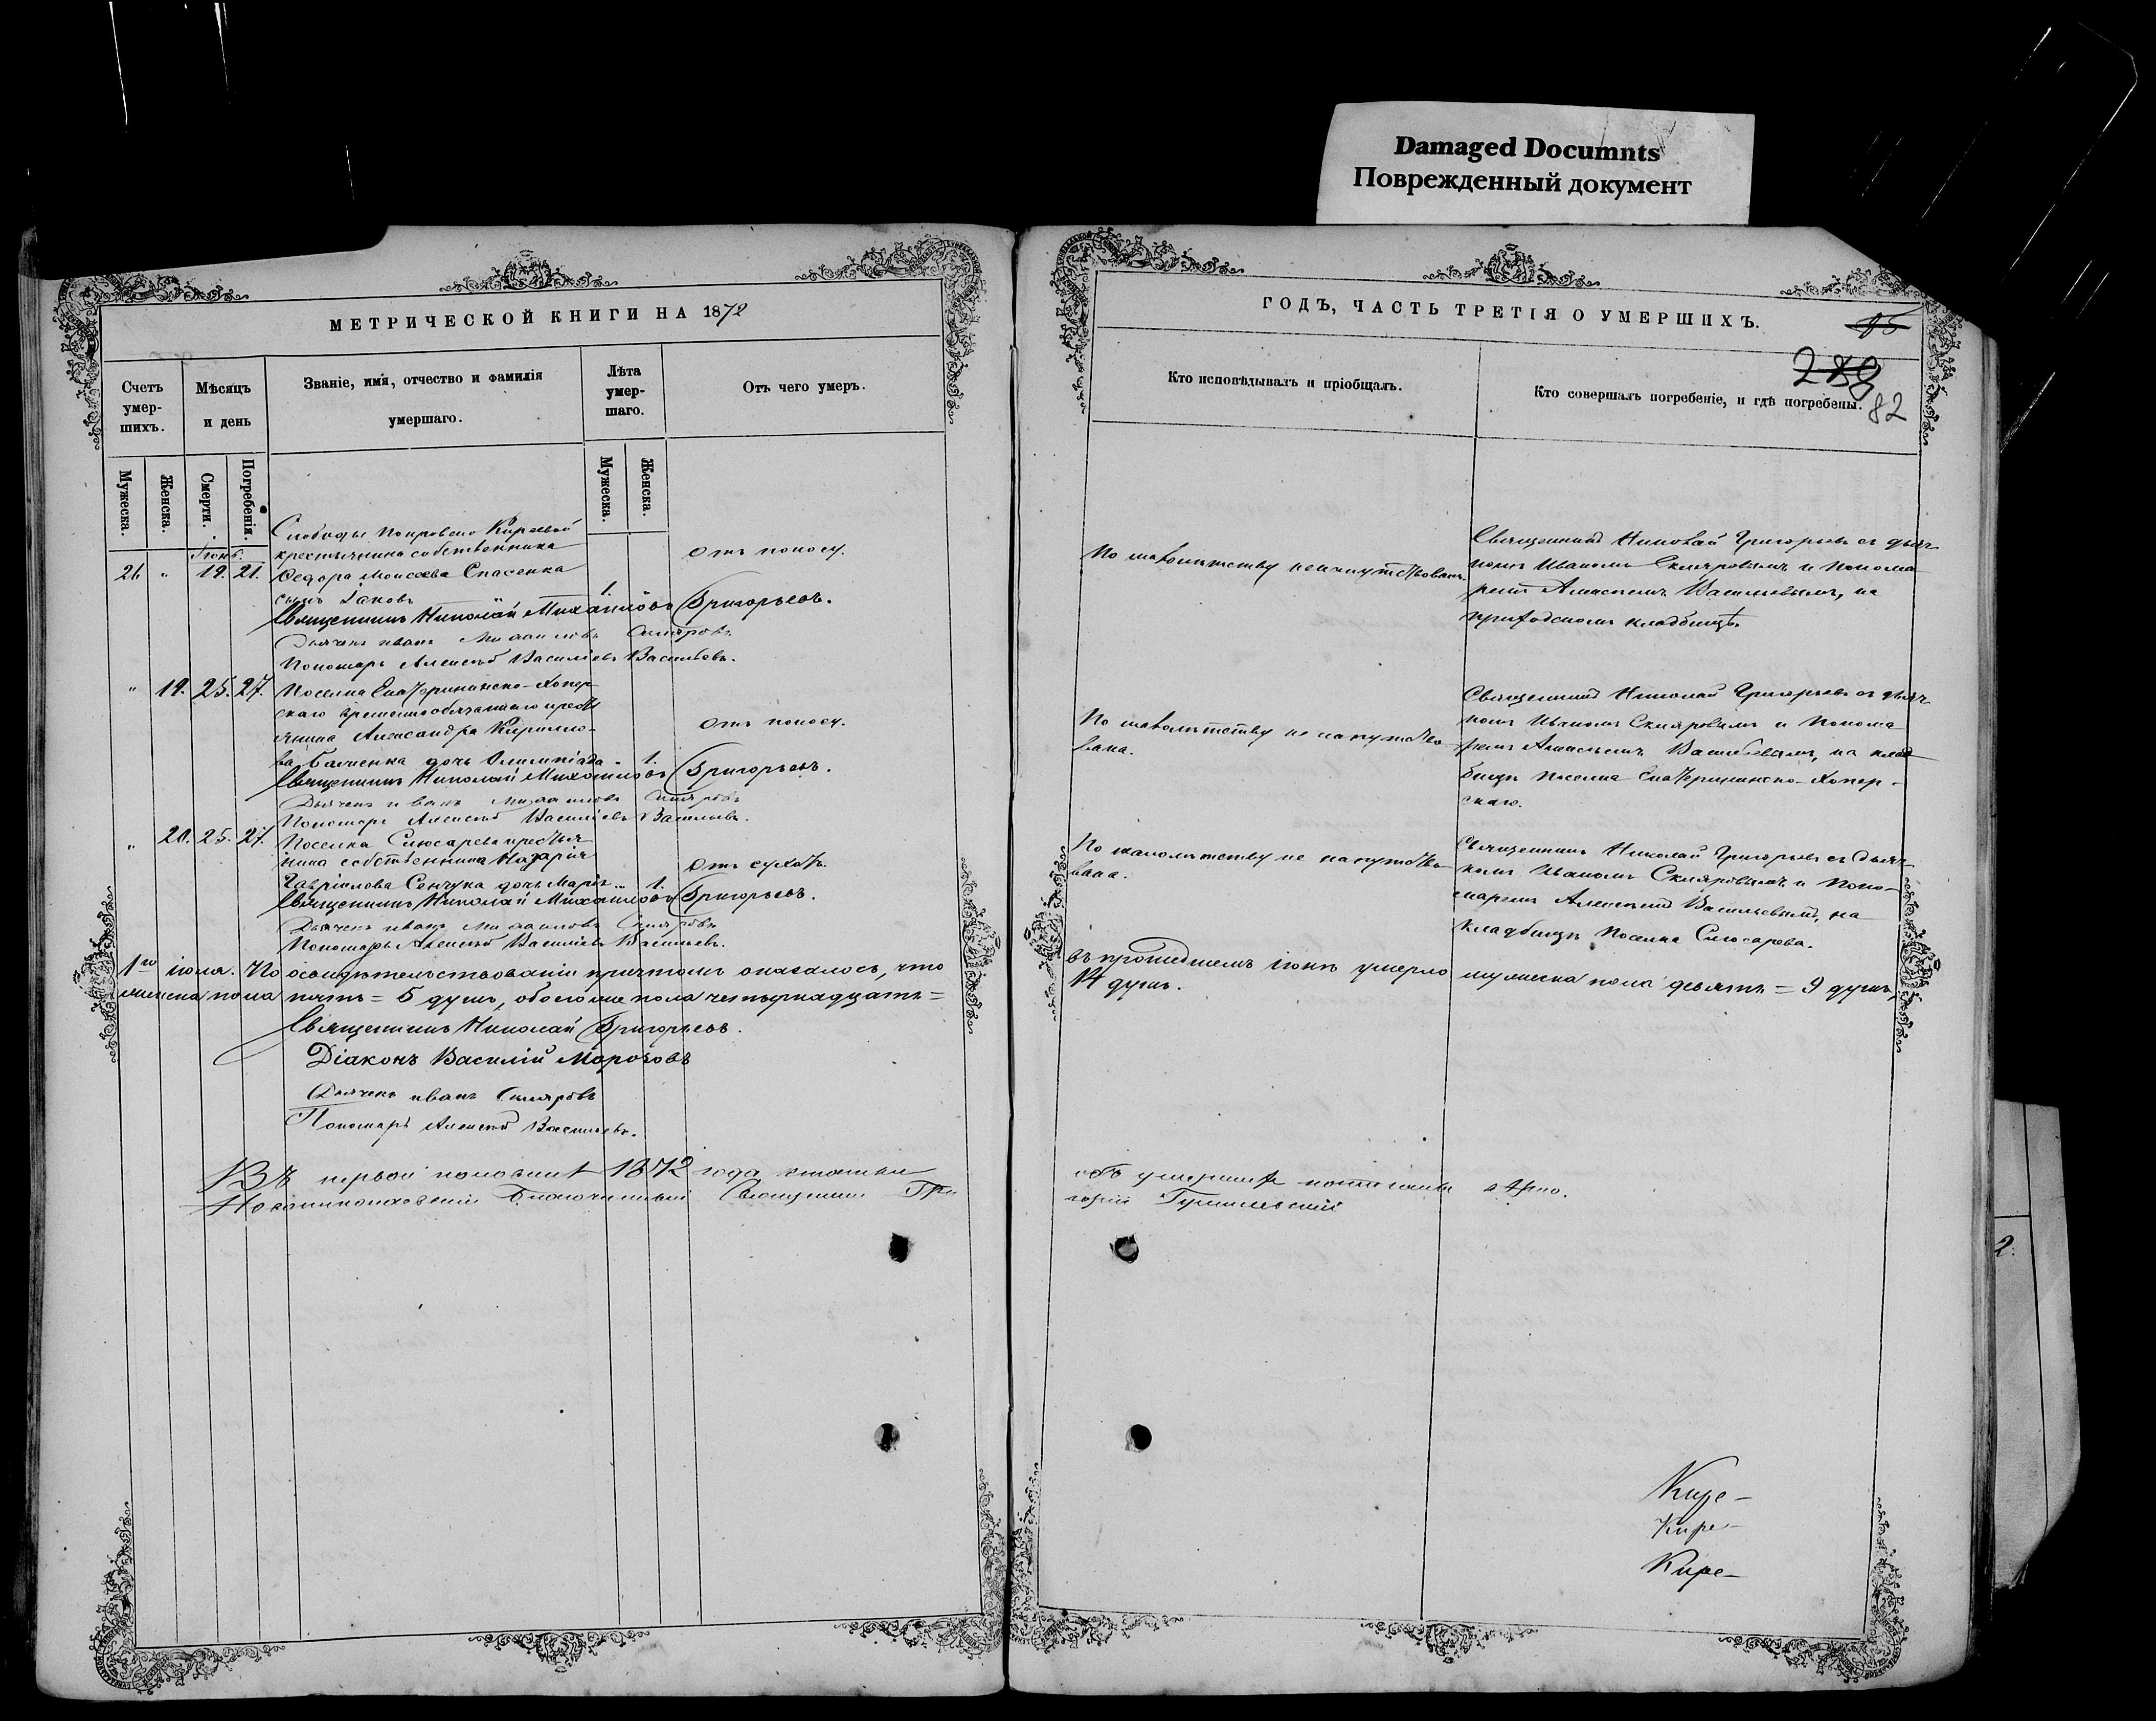 Damaged Documnts
Поврежденный документ
МЕТРИЧЕСКОЙ КНИГИ НА 1872
Счетъ умер-шихъ.
Мѣсяцъ и день
Званіе, имя, отчество и фамилія умершаго.
Лѣта умер-шаго.
Отъ чего умеръ.
Мужеска.
Женска.
Смерти.
Погребенія.
Мужеска.
Женска.
Слободы Покровско Киреевой
Іюнь. крестьянина собственника
26 " 19. 21. Ѳедора Моисеева Спасенка отъ поносу.
сынъ Іаковъ 1.
Священникъ Николай Михайловъ Григорьевъ.
Дьячекъ Иванъ Михаиловъ Скляровъ
Пономарь Алексѣй Василіевъ Васильевъ.
" 19. 25. 27. Поселка Екатерининско-Хопер-
скаго временнообязаннаго крест
янина Александра Кирилло- отъ поносу.
ва дочь Олимпіада 1.
Священникъ Николай Михайловъ Григорьевъ.
Дьячекъ Иванъ Михаиловъ Скляровъ
Пономарь Алексѣй Василіевъ Васильевъ.
" 20. 25. 27. Поселка Слюсарева крестья
нина собственника Назарія отъ сухот.
Гавріилова Сенчука дочь Марія 1.
Священникъ Николай Михайловъ Григорьевъ.
Дьячекъ Иванъ Михаиловъ Скляровъ
Пономарь Алексѣй Василіевъ Васильевъ.
1го іюля. По освидѣтельствованіи причтомъ оказалось, что
женска пола пять = 5 душъ, обоего же пола четырнадцать =
Священникъ Николай Григорьевъ.
Діаконъ Василій Морозовъ
Дьячекъ Иванъ Скляровъ
Пономарь Алексѣй Васильевъ.
Въ первой половинѣ 1872 года статьи
Новониколаевскій Благочинный Священникъ Гри
ГОДЪ, ЧАСТЬ ТРЕТІЯ О УМЕРШИХЪ.
82
Кто исповѣдывалъ и пріобщалъ.
Кто совершалъ погребеніе, и гдѣ погребены.
По малолѣтству ненапутствованъ.
Священникъ Николай Григорьевъ съ дьяч
комъ Иваномъ Скляровымъ и понома
ремъ Алексѣемъ Васильевымъ, на
приходскомъ кладбищѣ.
По малолѣтству не напутство
вана.
Священникъ Николай Григорьевъ съ дьяч
комъ Иваномъ Скляровымъ и понома
ремъ Алексѣемъ Васильевымъ, на клад
бищѣ поселка Екатерининско-Хопер-
скаго.
По малолѣтству не напутство
вана.
Священникъ Николай Григорьевъ съ дьяч
комъ Иваномъ Скляровымъ и поно-
маремъ Алексѣемъ Васильевымъ, на
кладбищѣ поселка Слюсарева.
въ прошедшемъ іюнѣ умерло мужеска пола девять = 9 душъ,
14 душъ.
объ умершихъ писаны вѣрно.
горій
Кире-
Кире-
Кире-
2.